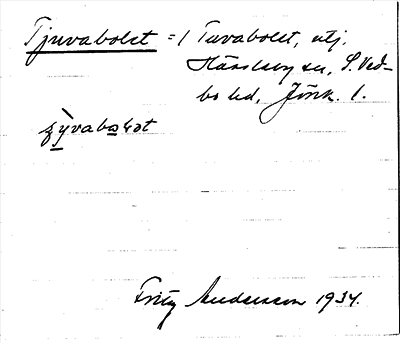 Tjuvabolet = 1 Tuvabolet, utj.
Hässleby sn, S. Ved-
bo hd, Jönk. l.
Fritz Andersson 1934.